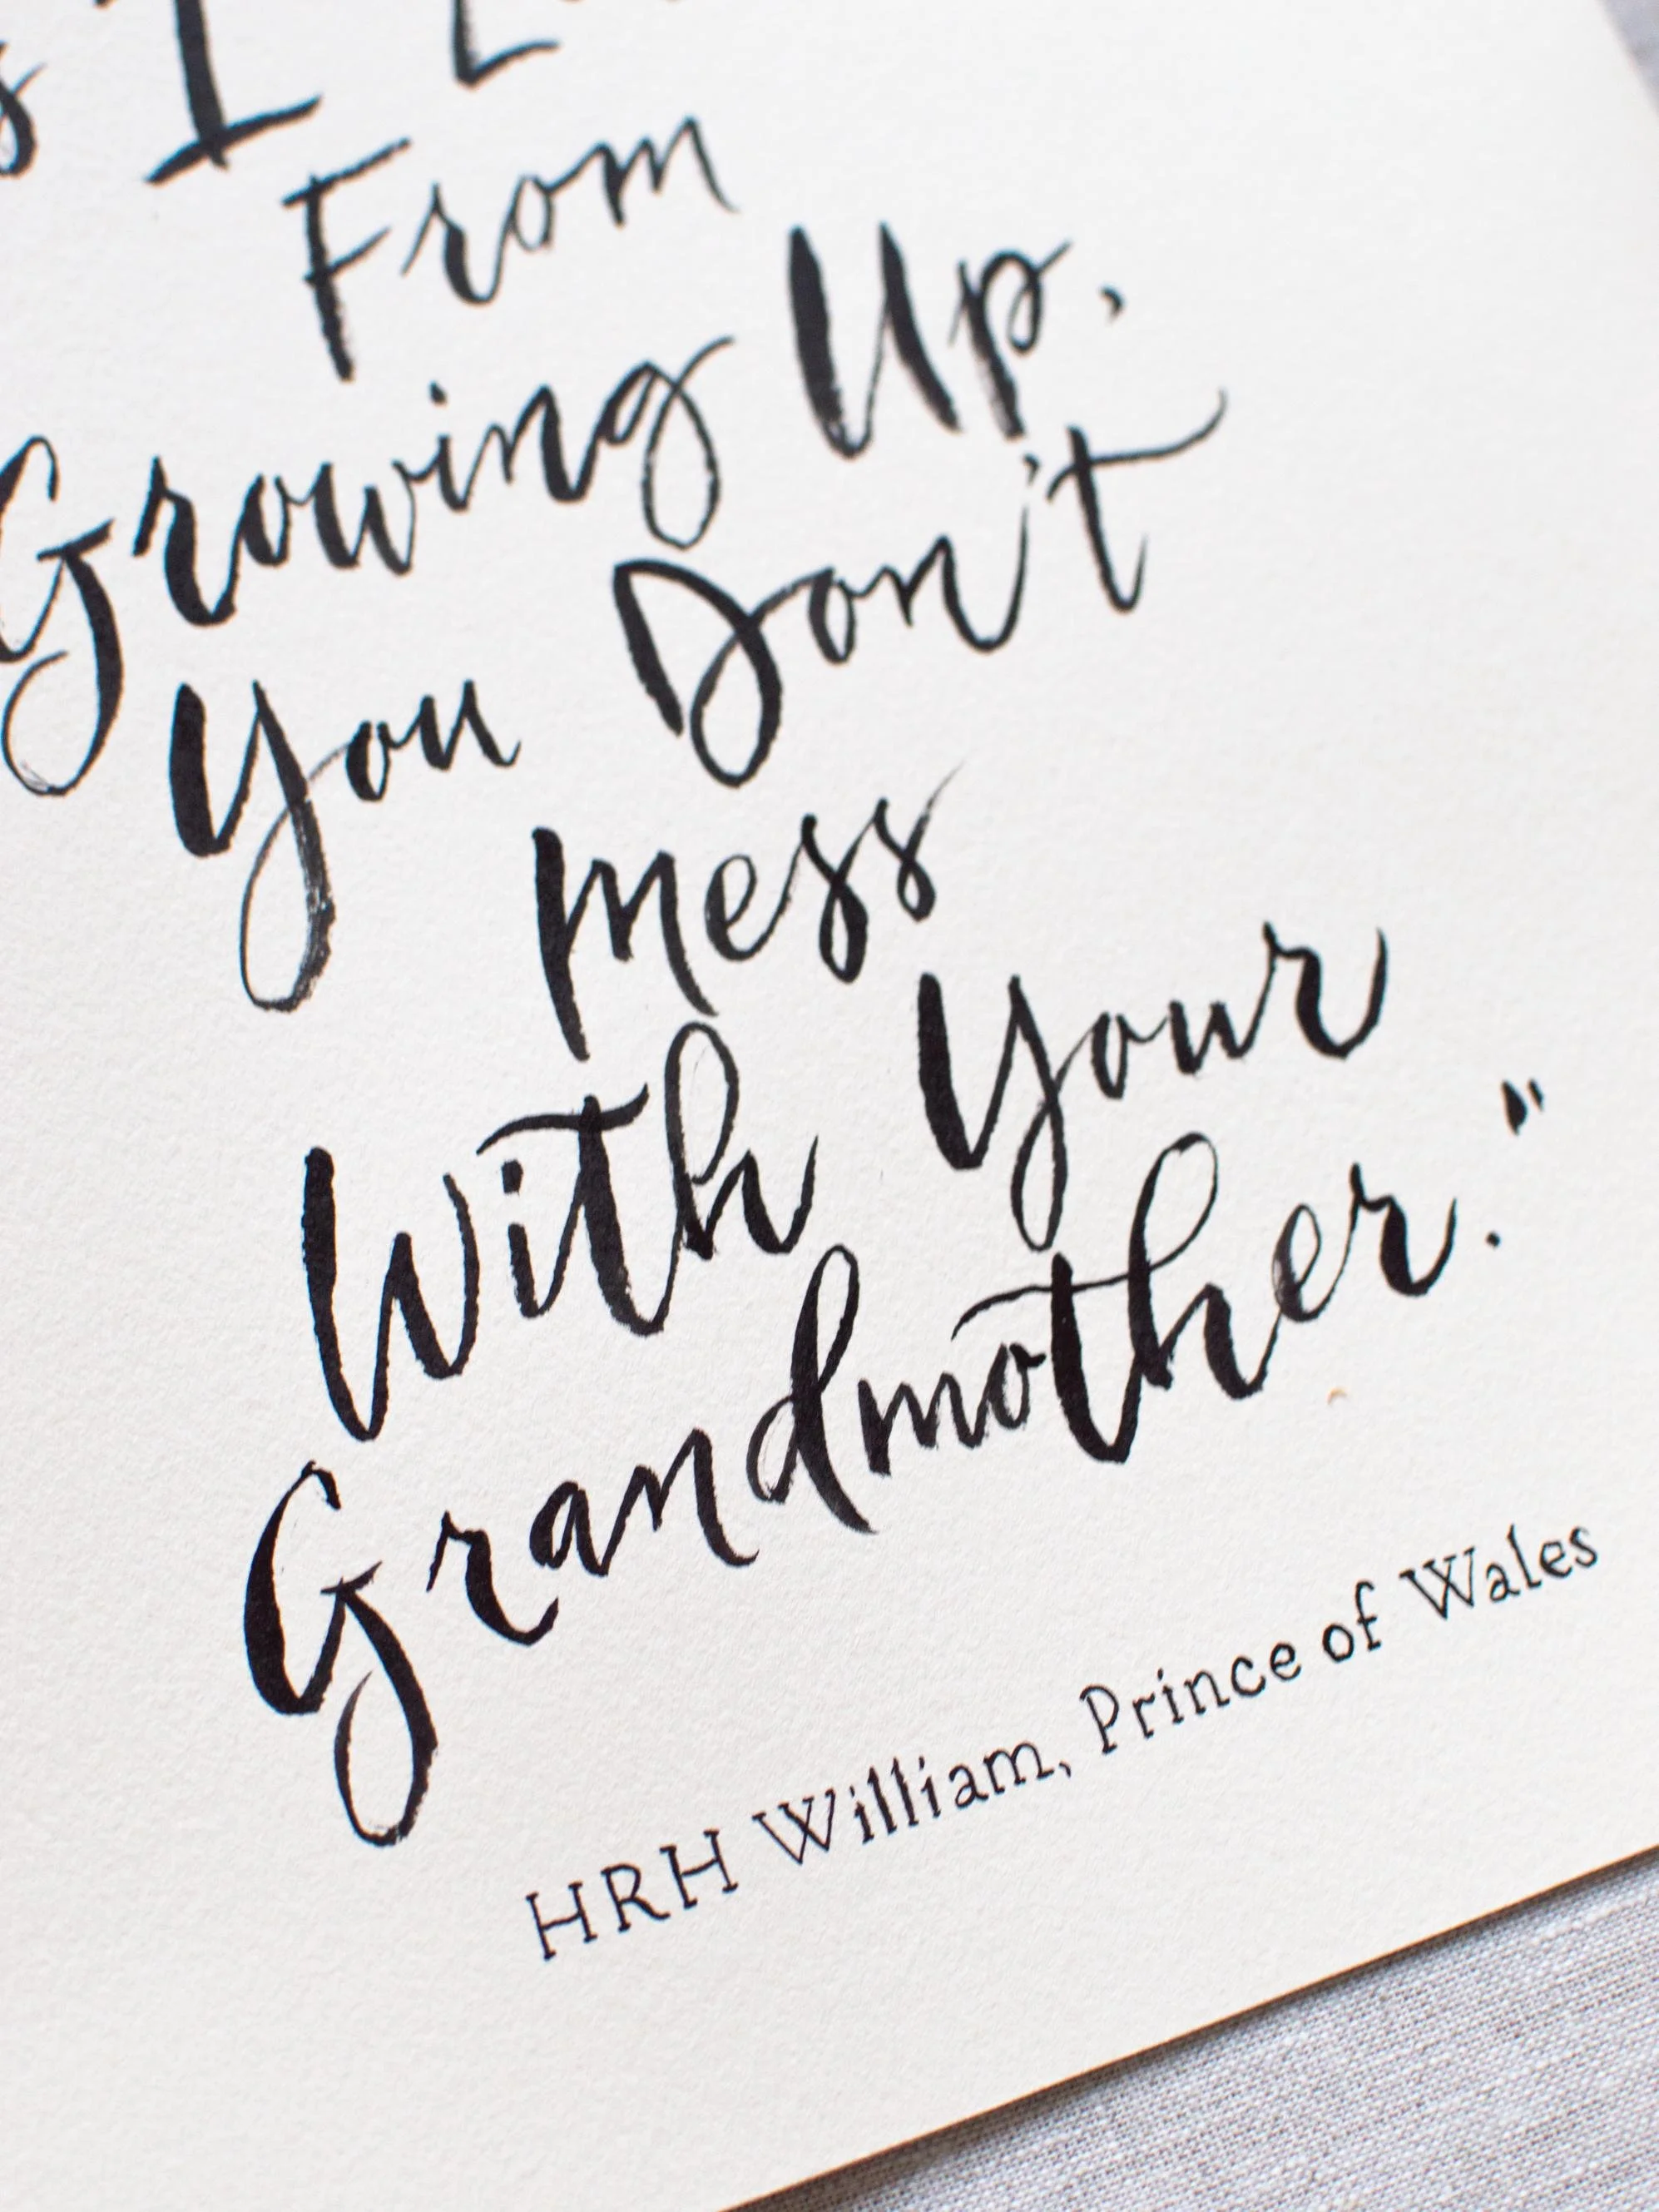 I
From
Growing Up.
You Don't
Mess
With Your
Grandmother."
HRH William, Prince of Wales